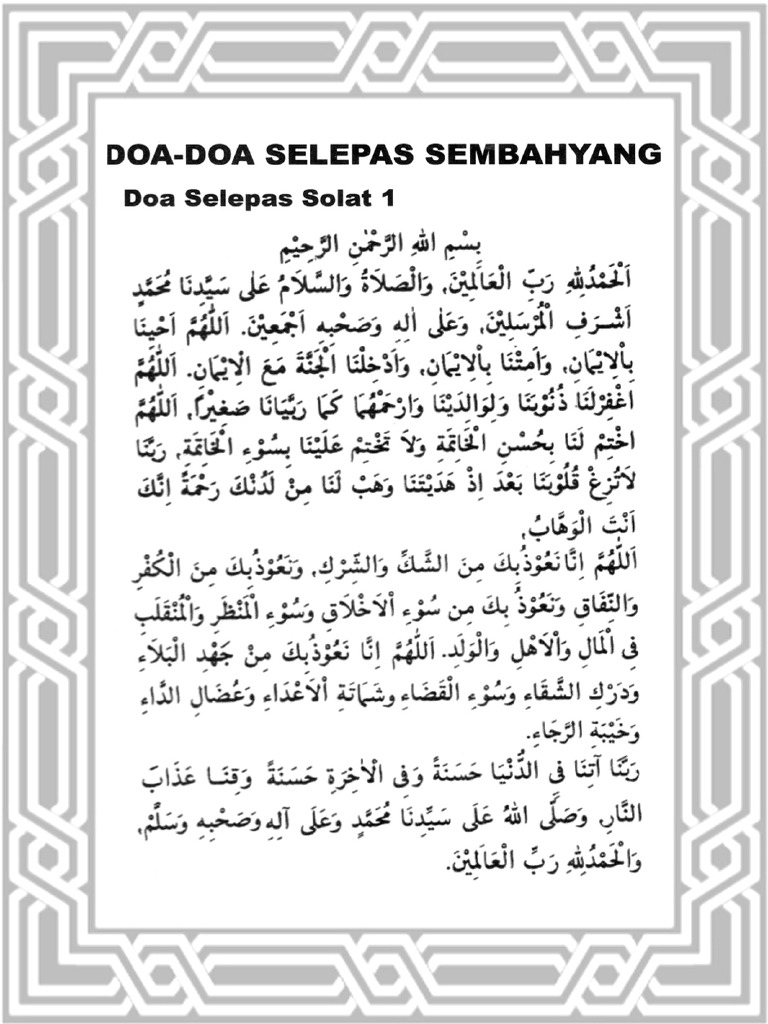 DOA-DOA SELEPAS SEMBAHYANG
Doa Selepas Solat 1
بِسْمِ اللهِ الرَّحْمٰنِ الرَّحِيْمِ
اَلْحَمْدُلِلّٰهِ رَبِّ الْعَالَمِيْنَ، وَالْصَلَاةُ وَالسَّلَامُ عَلٰى سَيِّدِنَا مُحَمَّدٍ
اَشْرَفِ الْمُرْسَلِيْنَ، وَعَلٰى اٰلِهِ وَصَحْبِهِ اَجْمَعِيْنَ. اَللّٰهُمَّ اَحْيِنَا
بِاْلاِيْمَانِ، وَاَمِتْنَا بِاْلاِيْمَانِ، وَاَدْخِلْنَا الْجَنَّةَ مَعَ الْاِيْمَانِ. اَللّٰهُمَّ
اغْفِرْلَنَا ذُنُوْبَنَا وَلِوَالَدَيْنَا وَارْحَمْهُمَا كَمَا رَبَّيَانَا صَغِيْرًا، اَللّٰهُمَّ
اخْتِمْ لَنَا بِحُسْنِ الْخَاتِمَةِ وَلَا تَخْتِمْ عَلَيْنَا بِسُوْءِ الْخَاتِمَةِ، رَبَّنَا
لَاتُزِغْ قُلُوْبَنَا بَعْدَ اِذْ هَدَيْتَنَا وَهَبْ لَنَا مِنْ لَدُنْكَ رَحْمَةً اِنَّكَ
اَنْتَ الْوَهَّابُ،
اَللّٰهُمَّ اِنَّا نَعُوْذُبِكَ مِنَ الشَّكِّ وَالشِّرْكِ، وَنَعُوْذُبِكَ مِنَ الْكُفْرِ
وَالنِّفَاقِ وَنَعُوْذُ بِكَ مِن سُوْءِ اْلاَخْلَاقِ وَسُوْءِ الْمَنْظَرِ وَالْمُنْقَلَبِ
فِى الْمَالِ وَاْلاَهْلِ وَالْوَلَدِ. اَللّٰهُمَّ اِنَّا نَعُوْذُبِكَ مِنْ جَهْدِ الْبَلَاءِ
وَدَرْكِ الشَّقَاءِ وَسُوْءِ الْقَضَاءِ وشَمَاتَةِ اْلاَعْدَاءِ وَعُضَالِ الدَّاءِ
وَخَيْبَةِ الرَّجَاءِ.
رَبَّنَا آتِنَا فِى الدُّنْيَا حَسَنَةً وَفِى الْاٰخِرَةِ حَسَنَةً وَقِنَا عَذَابَ
النَّارِ، وَصَلَّى اللهُ عَلَى سَيِّدِنَا مُحَمَّدٍ وَعَلَى آلِهِ وَصَحْبِهِ وَسَلَّمْ،
وَالْحَمْدُلِلّٰهِ رَبِّ الْعَالَمِيْنَ.